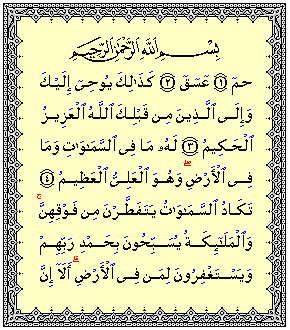 بِسْمِ ٱللَّهِ ٱلرَّحْمَٰنِ ٱلرَّحِيمِ
حمٓ ۝١ عٓسٓقٓ ۝٢ كَذَٰلِكَ يُوحِىٓ إِلَيْكَ
وَإِلَى ٱلَّذِينَ مِن قَبْلِكَ ٱللَّهُ ٱلْعَزِيزُ
ٱلْحَكِيمُ ۝٣ لَهُۥ مَا فِى ٱلسَّمَٰوَٰتِ وَمَا
فِى ٱلْأَرْضِ ۖ وَهُوَ ٱلْعَلِىُّ ٱلْعَظِيمُ ۝٤
تَكَادُ ٱلسَّمَٰوَٰتُ يَتَفَطَّرْنَ مِن فَوْقِهِنَّ ۚ
وَٱلْمَلَٰٓئِكَةُ يُسَبِّحُونَ بِحَمْدِ رَبِّهِمْ
وَيَسْتَغْفِرُونَ لِمَن فِى ٱلْأَرْضِ ۗ أَلَآ إِنَّ